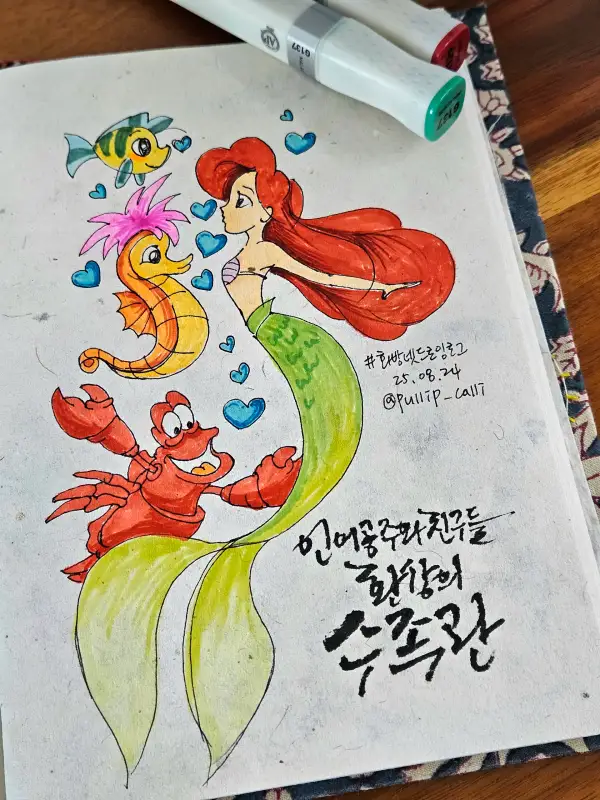 G137
#화방넷드로잉로그
25.08.24
@pullip_calli
인어공주와 친구들
환상의
수족관